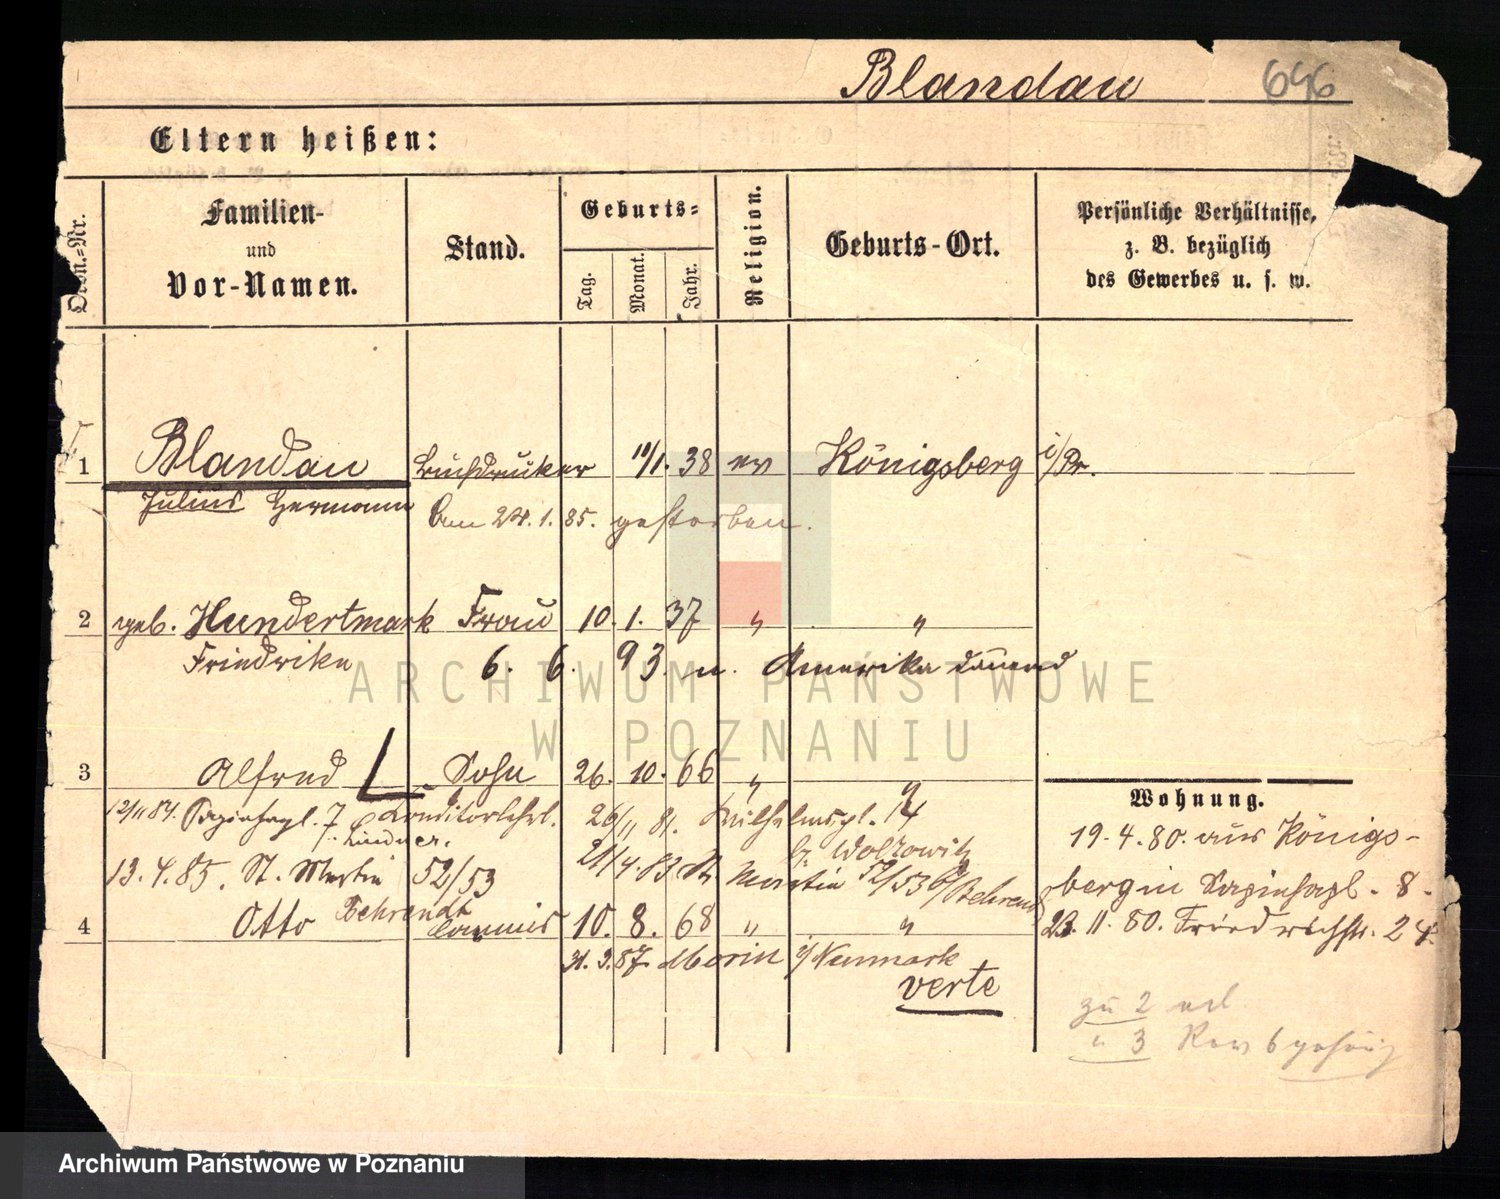 Blandau 696
Eltern heißen:
Ordn.-Nr.
Familien-
und
Vor-Namen.
Stand.
Geburts-
Tag.
Monat.
Jahr.
Religion.
Geburts-Ort.
Persönliche Verhältnisse,
z. B. bezüglich
des Gewerbes u. s. w.
1 Blandau Buchdrucker 11/1. 38 ev Königsberg i/Pr.
Julius Hermann
Am 24. 1. 85. gestorben.
2 geb. Hundertmark Frau 10. 1. 37 " "
Friedrike 6. 6. 93. n. Amerika dauernd
3 Alfred Sohn 26. 10. 66 " "
12/11 84. Sapiehapl. 7 Conditorlehrl. 26/11 81. Wilhelmspl. 14
b. Lindner.
21/4. 83 St. Martin 52/53 b/Behrend
b. Wolkowitz
13. 4. 85. St. Martin 52/53
Behrendt
4 Otto Commis 10. 8. 68 " "
31. 3. 87. Morin i/Neumark
verte
Wohnung.
19. 4. 80. aus Königs-
berg in Sapiehapl. 8.
23. 11. 80. Friedrichstr. 24.
zu 2 und
" 3 Rev 6 gehörig
ARCHIWUM PAŃSTWOWE
W POZNANIU
Archiwum Państwowe w Poznaniu